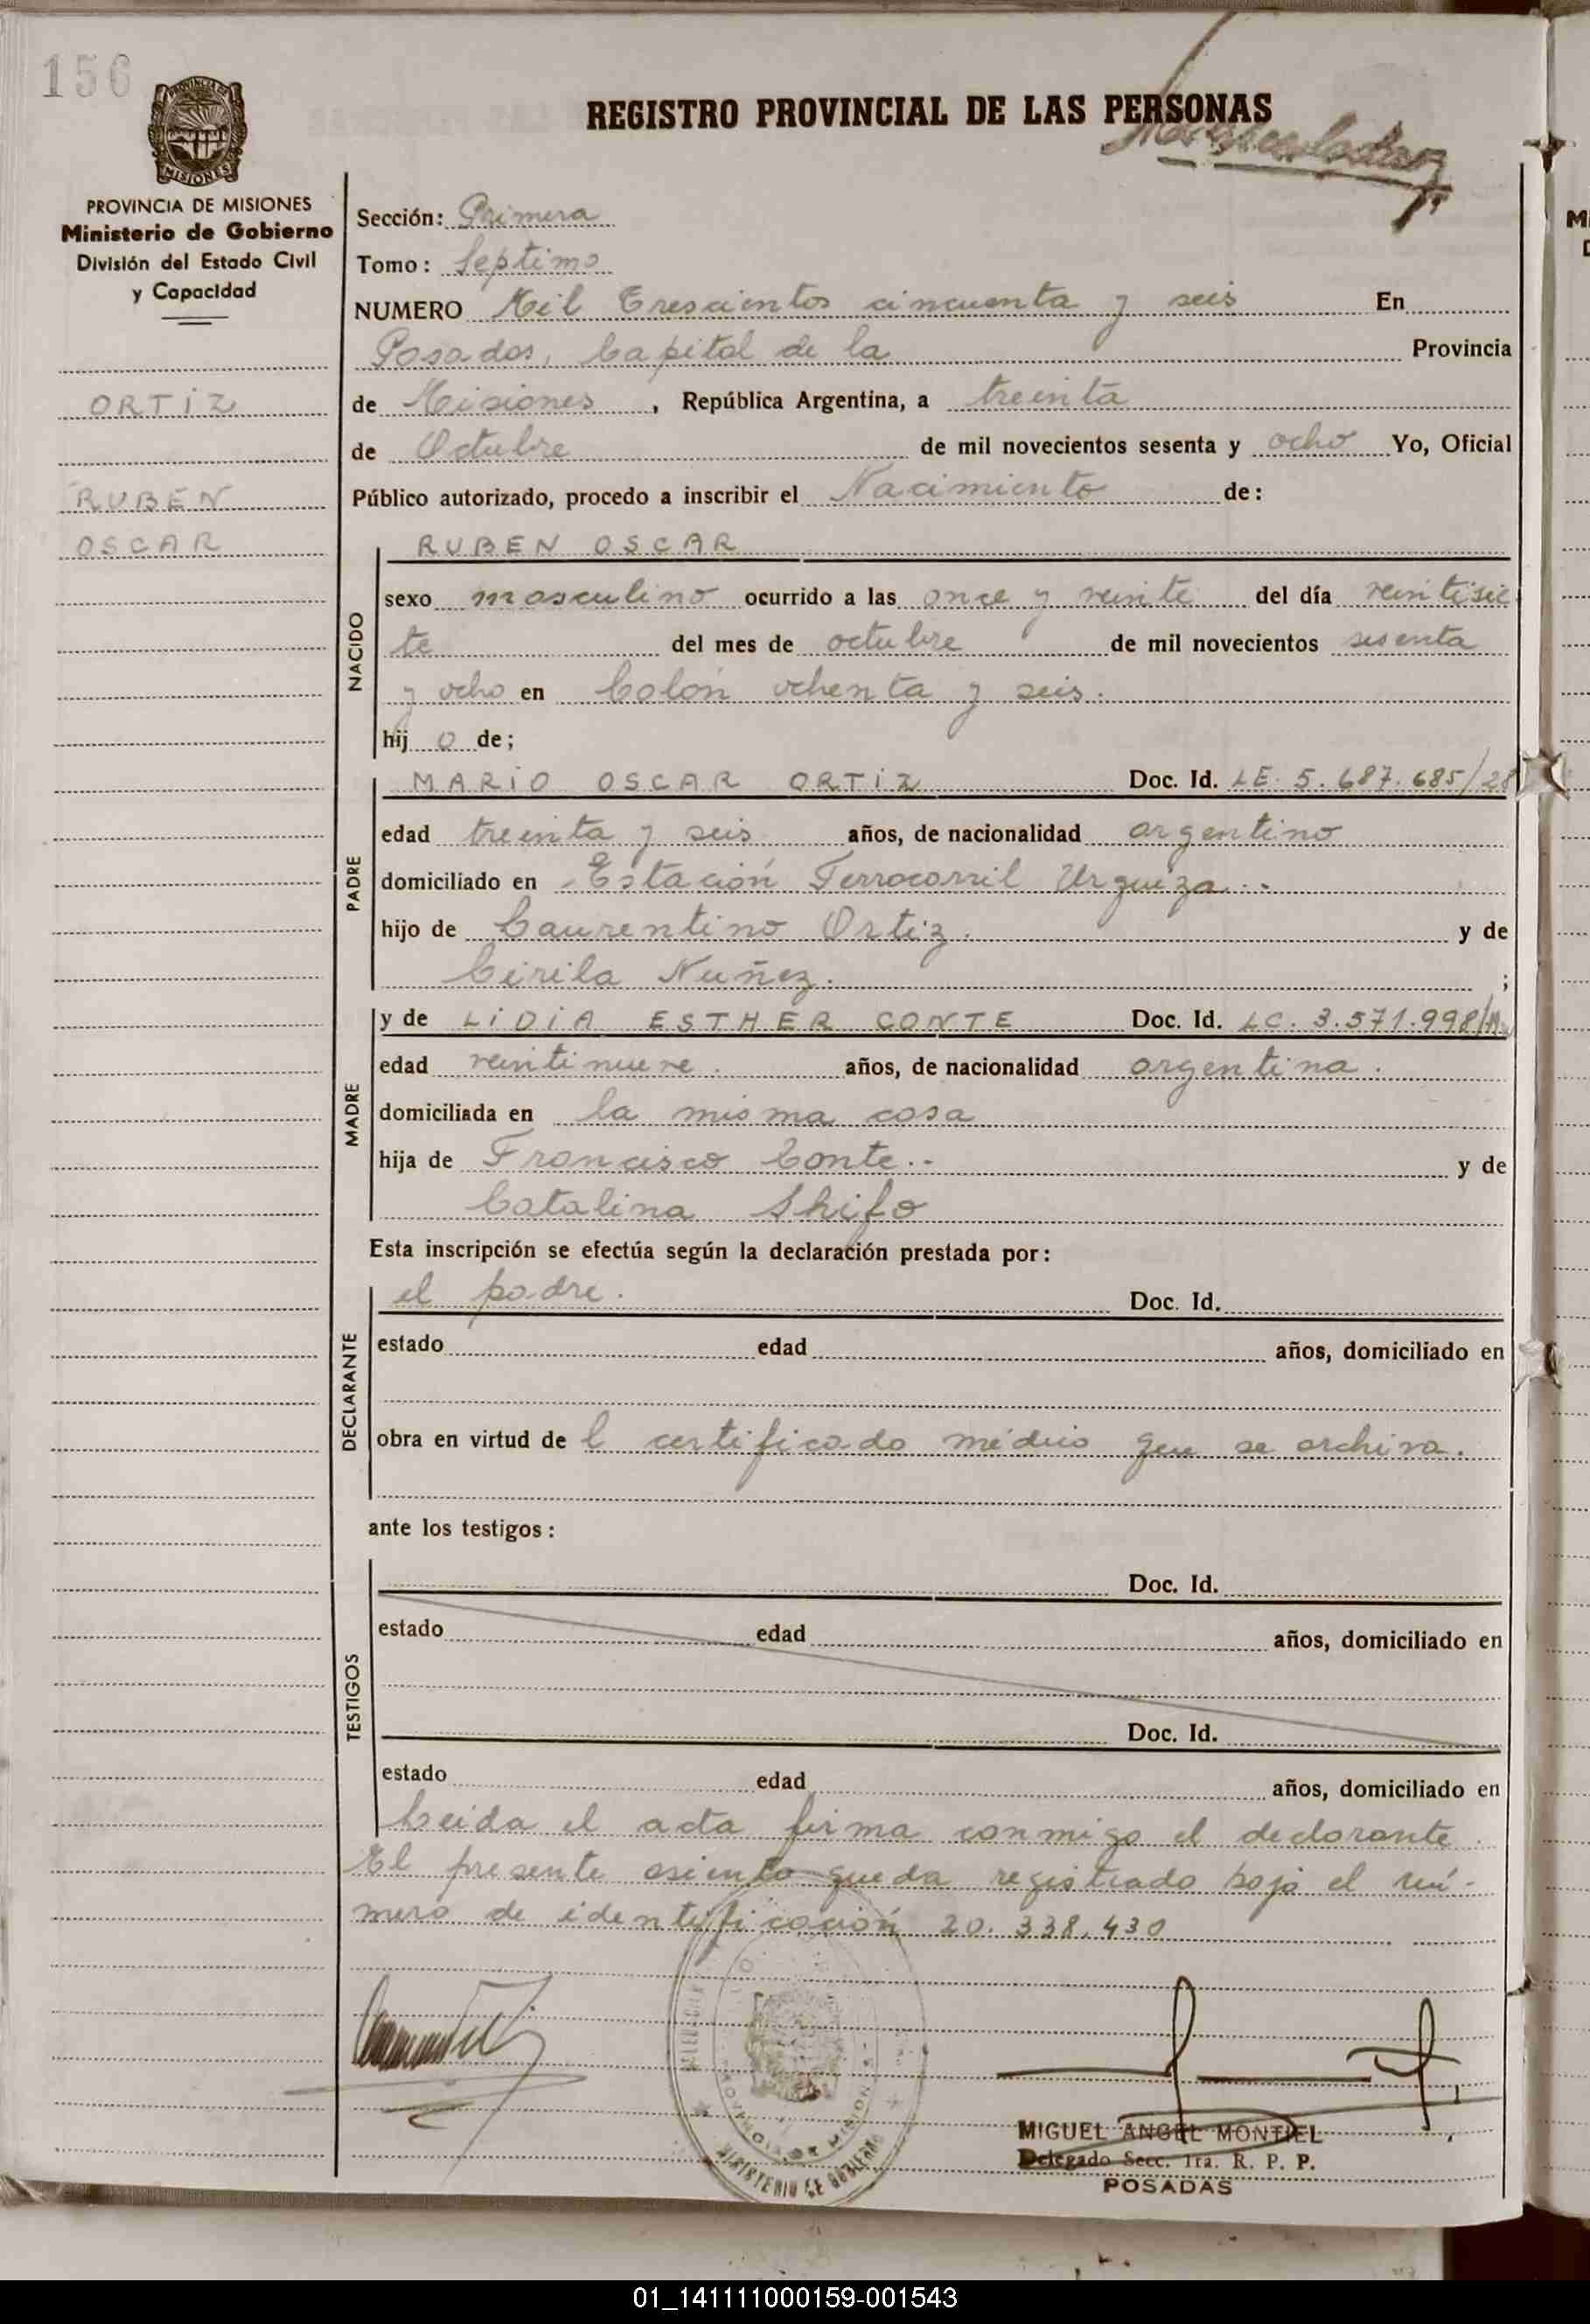 156
REGISTRO PROVINCIAL DE LAS PERSONAS
PROVINCIA DE MISIONES
Ministerio de Gobierno
División del Estado Civil
y Capacidad
ORTIZ
RUBEN
OSCAR
Sección: Primera
Tomo: Septimo
NUMERO Mil Trescientos cincuenta y seis En
Posadas, Capital de la Provincia
de Misiones, República Argentina, a treinta
de Octubre de mil novecientos sesenta y ocho Yo, Oficial
Público autorizado, procedo a inscribir el Nacimiento de:
NACIDO
RUBEN OSCAR
sexo masculino ocurrido a las once y veinte del día veintisie
te del mes de octubre de mil novecientos sesenta
y ocho en Colón ochenta y seis.
hij o de;
PADRE
MARIO OSCAR ORTIZ Doc. Id. LE. 5.687.685/28
edad treinta y seis años, de nacionalidad argentino
domiciliado en Estación Ferrocarril Urquiza.
hijo de Laurentino Ortiz. y de
Cirila Nuñez. ;
MADRE
y de LIDIA ESTHER CONTE Doc. Id. LC. 3.571.998/
edad veintinueve. años, de nacionalidad argentina.
domiciliada en la misma casa
hija de Francisco Conte.- y de
Catalina Shifo
Esta inscripción se efectúa según la declaración prestada por:
DECLARANTE
el padre. Doc. Id.
estado edad años, domiciliado en
obra en virtud de l certificado médico que se archiva.
ante los testigos:
TESTIGOS
Doc. Id.
estado edad años, domiciliado en
Doc. Id.
estado edad años, domiciliado en
Leida el acta firma conmigo el declarante.
El presente asiento queda registrado bajo el nú-
mero de identificación 20.338.430
MINISTERIO DE GOBIERNO
MIGUEL ANGEL MONTIEL
Delegado Secc. 1ra. R. P. P.
POSADAS
01_141111000159-001543